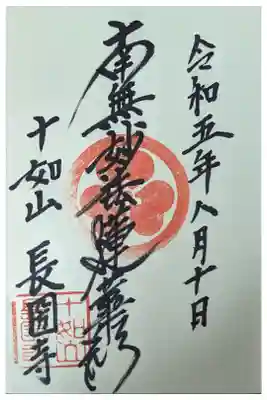 令和五年八月十日
南無妙法蓮華経
十如山 長圓寺